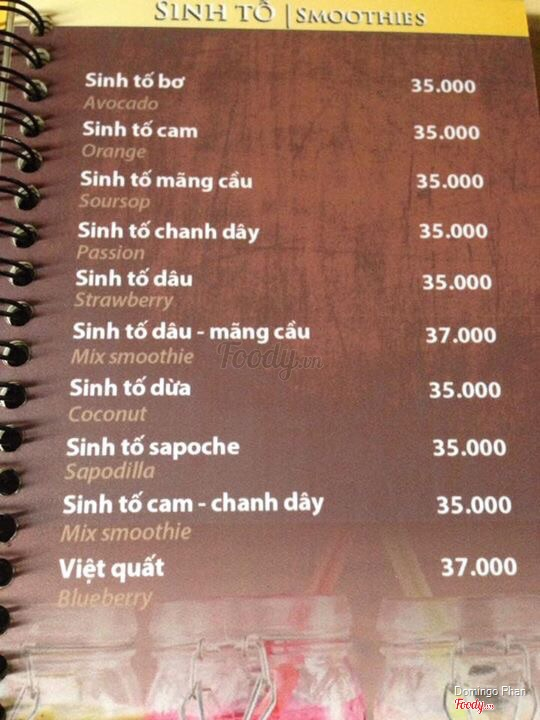 SINH TỐ | SMOOTHIES
Sinh tố bơ 35.000
Avocado
Sinh tố cam 35.000
Orange
Sinh tố mãng cầu 35.000
Soursop
Sinh tố chanh dây 35.000
Passion
Sinh tố dâu 35.000
Strawberry
Sinh tố dâu - mãng cầu 37.000
Mix smoothie
Foody.vn
Sinh tố dừa 35.000
Coconut
Sinh tố sapoche 35.000
Sapodilla
Sinh tố cam - chanh dây 35.000
Mix smoothie
Việt quất 37.000
Blueberry
Domingo Phan
Foody.vn